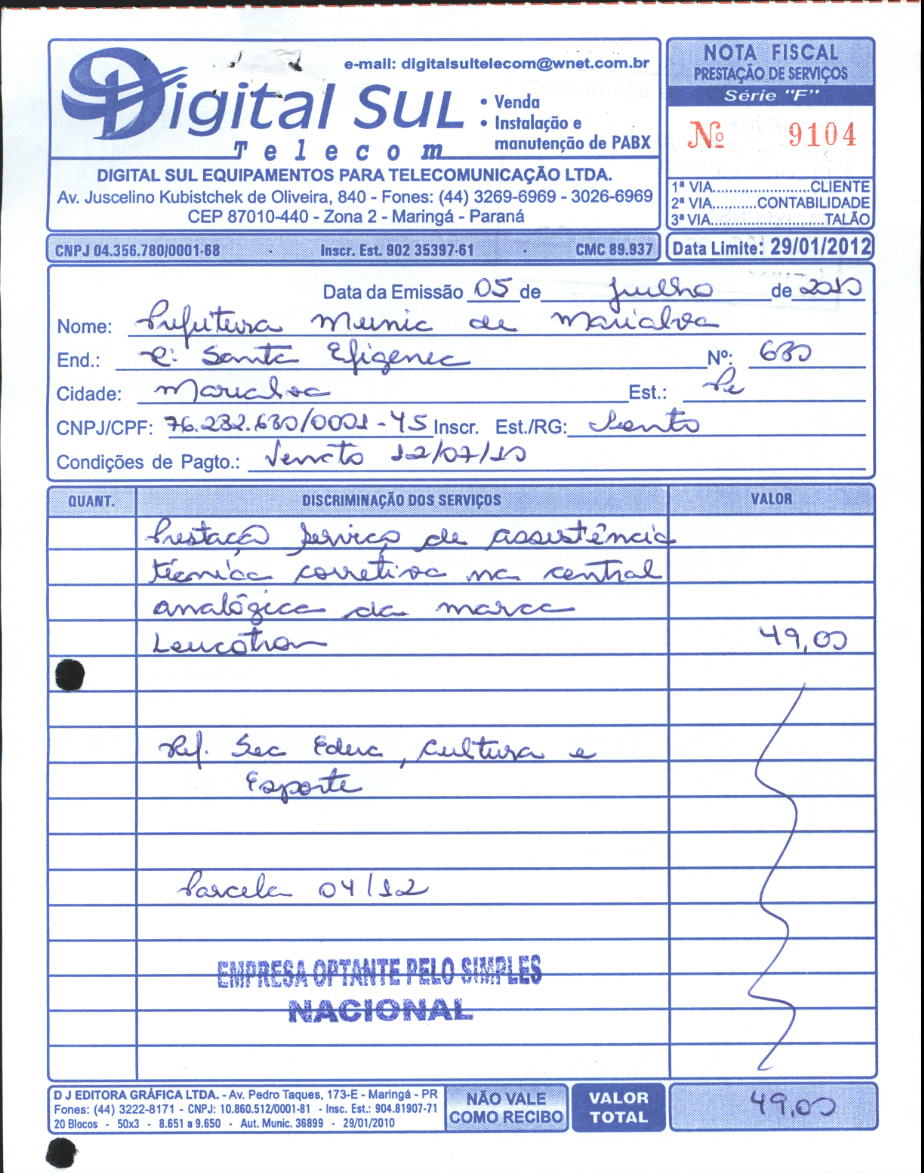 e-mail: digitalsultelecom@wnet.com.br
Digital Sul
Telecom
• Venda
• Instalação e
manutenção de PABX
DIGITAL SUL EQUIPAMENTOS PARA TELECOMUNICAÇÃO LTDA.
Av. Juscelino Kubistchek de Oliveira, 840 - Fones: (44) 3269-6969 - 3026-6969
CEP 87010-440 - Zona 2 - Maringá - Paraná
NOTA FISCAL
PRESTAÇÃO DE SERVIÇOS
Série "F"
Nº 9104
1ª VIA......................CLIENTE
2ª VIA..........CONTABILIDADE
3ª VIA.........................TALÃO
CNPJ 04.356.780/0001-68 - Inscr. Est. 902 35397-61 - CMC 89.937
Data Limite: 29/01/2012
Data da Emissão 05 de Julho de 2010
Nome: Prefeitura Munic de Marialva
End.: R: Santa Efigenea Nº: 680
Cidade: Marialva Est.: Pr
CNPJ/CPF: 76.282.680/0001-45 Inscr. Est./RG: Isento
Condições de Pagto.: Vencto 12/07/10
QUANT. DISCRIMINAÇÃO DOS SERVIÇOS VALOR
Prestação serviço de assistência
técnica corretiva na central
analógica da marca
Leucotron 49,00
Ref. Sec Educ, Cultura e
Esporte
Parcela 04/12
EMPRESA OPTANTE PELO SIMPLES
NACIONAL
D J EDITORA GRÁFICA LTDA. - Av. Pedro Taques, 173-E - Maringá - PR
Fones: (44) 3222-8171 - CNPJ: 10.860.512/0001-81 - Insc. Est.: 904.81907-71
20 Blocos - 50x3 - 8.651 a 9.650 - Aut. Munic. 36899 - 29/01/2010
NÃO VALE
COMO RECIBO
VALOR
TOTAL
49,00